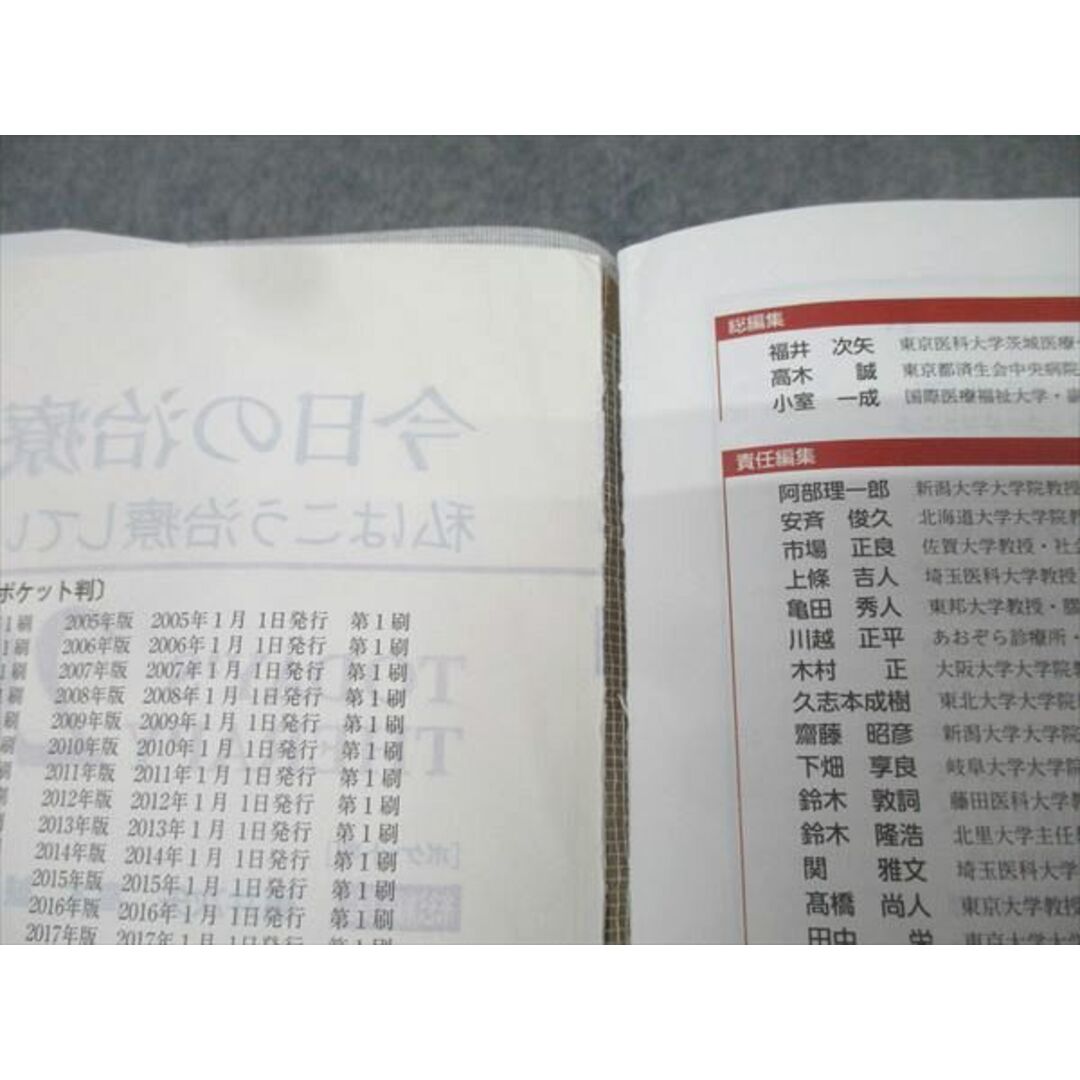 今日の治療
私はこう治療してい
ポケット判〕
1刷 2005年版 2005年1月 1日発行 第1刷
1刷 2006年版 2006年1月 1日発行 第1刷
1刷 2007年版 2007年1月 1日発行 第1刷
1刷 2008年版 2008年1月 1日発行 第1刷
刷 2009年版 2009年1月 1日発行 第1刷
刷 2010年版 2010年1月 1日発行 第1刷
2011年版 2011年1月 1日発行 第1刷
2012年版 2012年1月 1日発行 第1刷
2013年版 2013年1月 1日発行 第1刷
2014年版 2014年1月 1日発行 第1刷
2015年版 2015年1月 1日発行 第1刷
2016年版 2016年1月 1日発行 第1刷
2017年版 2017年1月 1日発行 第1刷
総編集
福井 次矢 東京医科大学茨城医療
高木 誠 東京都済生会中央病院
小室 一成 国際医療福祉大学・副
責任編集
阿部理一郎 新潟大学大学院教授
安斉 俊久 北海道大学大学院教
市場 正良 佐賀大学教授・社会
上條 吉人 埼玉医科大学教授
亀田 秀人 東邦大学教授・膠
川越 正平 あおぞら診療所・
木村 正 大阪大学大学院教
久志本成樹 東北大学大学院
齋藤 昭彦 新潟大学大学院
下畑 享良 岐阜大学大学院
鈴木 敦詞 藤田医科大学教
鈴木 隆浩 北里大学主任
関 雅文 埼玉医科大学
髙橋 尚人 東京大学教授
田中 栄 東京大学大学